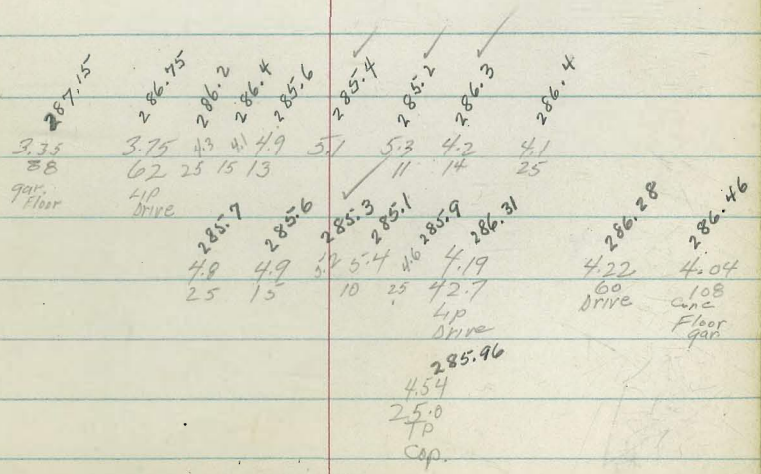 287.15 286.75 286.2 286.4 285.6 285.4 285.2 286.3 286.4
3.35 3.75 4.3 4.1 4.9 5.1 5.3 4.2 4.1
88 62 25 15 13 11 14 25
gar. Lip
Floor Drive
285.7 285.6 285.3 285.1 285.9 286.31 286.28 286.46
4.8 4.9 5.2 5.4 4.6 4.19 4.22 4.04
25 15 10 25 42.7 60 108
Lip Drive Conc
Drive Floor
gar.
285.96
4.54
25.0
TP
Cop.